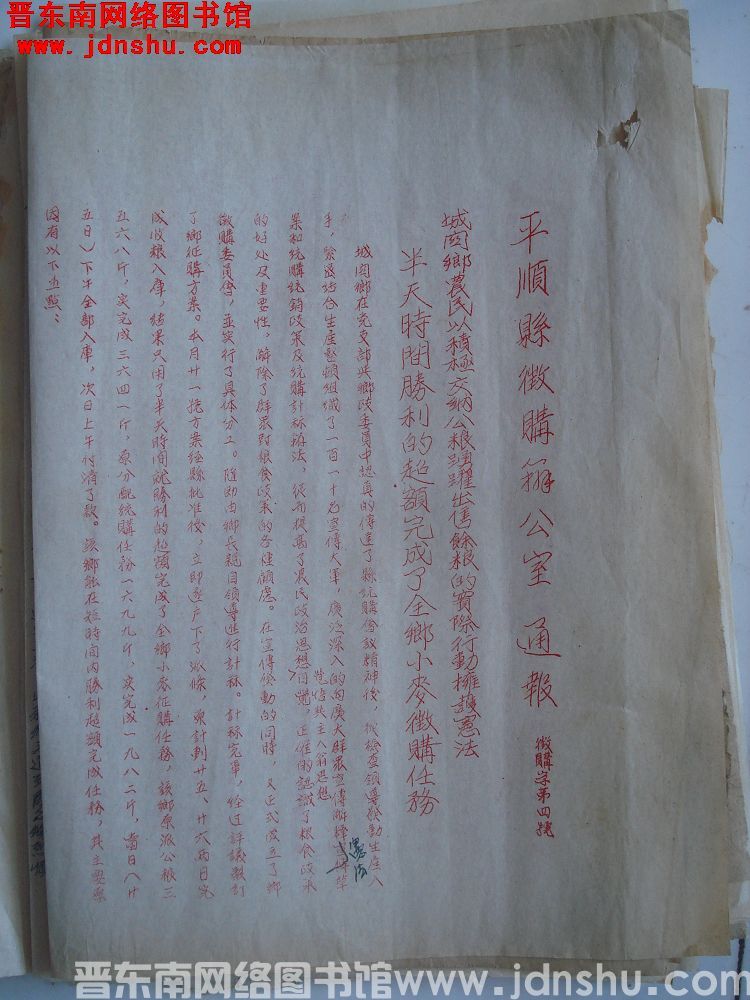 晋东南网络图书馆
www.jdnshu.com
平順縣徵購辦公室 通報 徵購字第四號
城関鄉農民以積極交納公粮踴躍出售餘粮的實際行動擁護憲法
半天時間勝利的超額完成了全鄉小麥徵購任務
城関鄉在党支部與鄉政委員中認真的傳達了縣統購會議精神後，從檢查領導發動生産入
手，緊緊結合生産整頓組織了一百一十名宣傳大軍，廣泛深入的向廣大群衆宣傳解釋憲法草
案和統購統銷政策及統購計算辦法，從而提高了農民政治思想自覺，范倩共主人翁思想正確的認識了粮食政策
的好处及重要性，解除了群眾对粮食政策的各種顧慮。在宣傳發動的同時，又正式成立了鄉
徵購委員會，並实行了具体分工。隨即由鄉長親自領導進行計算。計算完畢，经过評議製訂
了鄉征購方案。本月廿一號方案经縣批准後，立即逐戶下了派條，原計劃廿五、廿六兩日完
成收粮入庫，结果只用了半天時间就勝利的超額完成了全鄉小麥征購任務，該鄉原派公粮三
五六八斤，实完成三六四一斤，原分配統購任務一六九九斤，实完成一九八二斤，當日（廿
五日）下午全部入庫，次日上午付清了款。該鄉能在短時间內勝利超額完成任務，其主要原
因有以下五點：
憲法
晋东南网络图书馆www.jdnshu.com